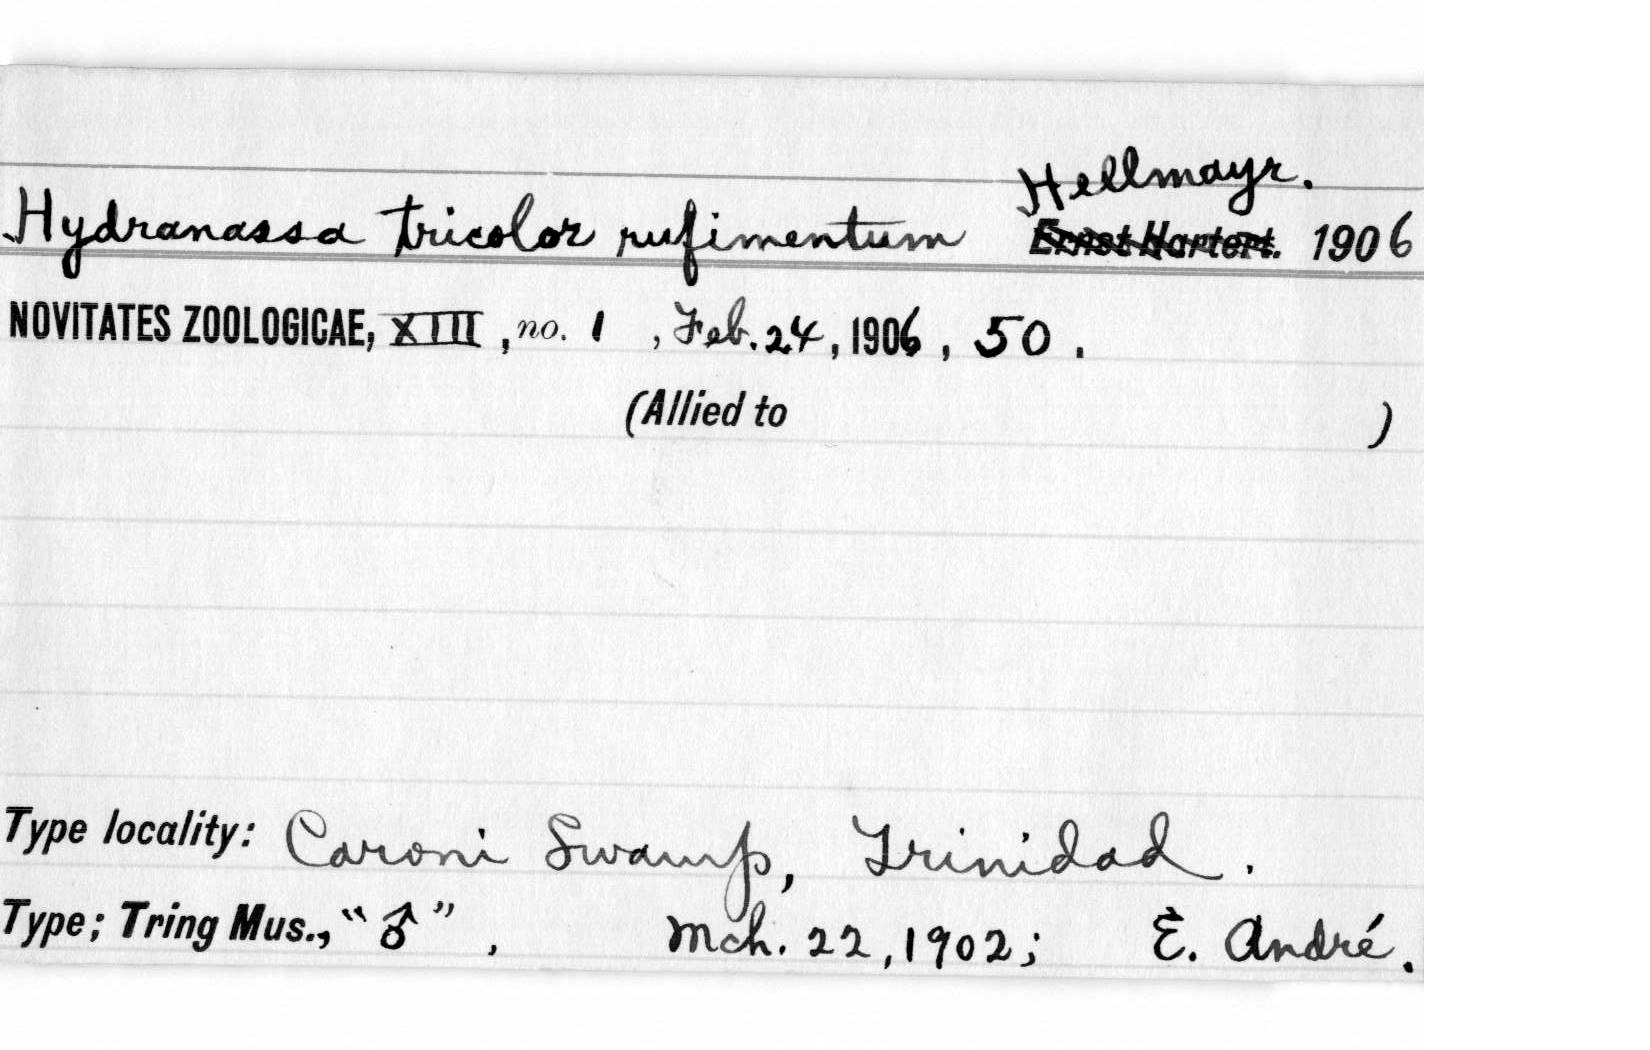 Hellmayr.
Hydranassa tricolor rufimentum Ernst Hartert. 1906
NOVITATES ZOOLOGICAE, XIII, no. 1, Feb. 24, 1906, 50.
(Allied to )
Type locality: Caroni Swamp, Trinidad.
Type; Tring Mus., "♂", Mch. 22, 1902; E. André.